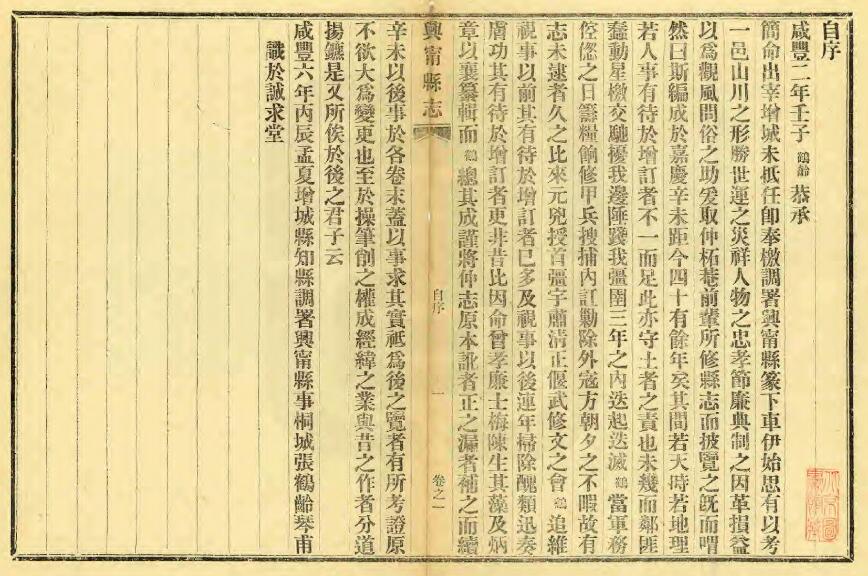 自序
咸豐二年壬子鶴齡恭承
簡命出宰增城未抵任卽奉檄調署興甯縣篆下車伊始思有以考
一邑山川之形勝世運之災祥人物之忠孝節廉典制之因革損益
以爲觀風問俗之助爰取仲柘菴前輩所修縣志而披覽之旣而喟
然曰斯編成於嘉慶辛未距今四十有餘年矣其間若天時若地理
若人事有待於增訂者不一而足此亦守土者之責也未幾而鄰匪
蠢動星檄交馳擾我邊陲踐我疆圉三年之內迭起迭滅鶴當軍務
倥傯之日籌糧餉修甲兵搜捕內訌勦除外寇方朝夕之不暇故有
志未逮者久之比來元兇授首疆宇肅淸正偃武修文之會鶴追維
視事以前其有待於增訂者已多及視事以後連年掃除醜類迅奏
膚功其有待於增訂者更非昔比因命曾孝廉士梅陳生其藻及炳
章以襄纂輯而鶴總其成謹將仲志原本訛者正之漏者補之而續
興甯縣志
自序
一
卷之一
辛未以後事於各卷末蓋以事求其實祇爲後之覽者有所考證原
不欲大爲變更也至於操筆削之權成經緯之業與昔之作者分道
揚鑣是又所俟於後之君子云
咸豐六年丙辰孟夏增城縣知縣調署興甯縣事桐城張鶴齡琴甫
識於誠求堂